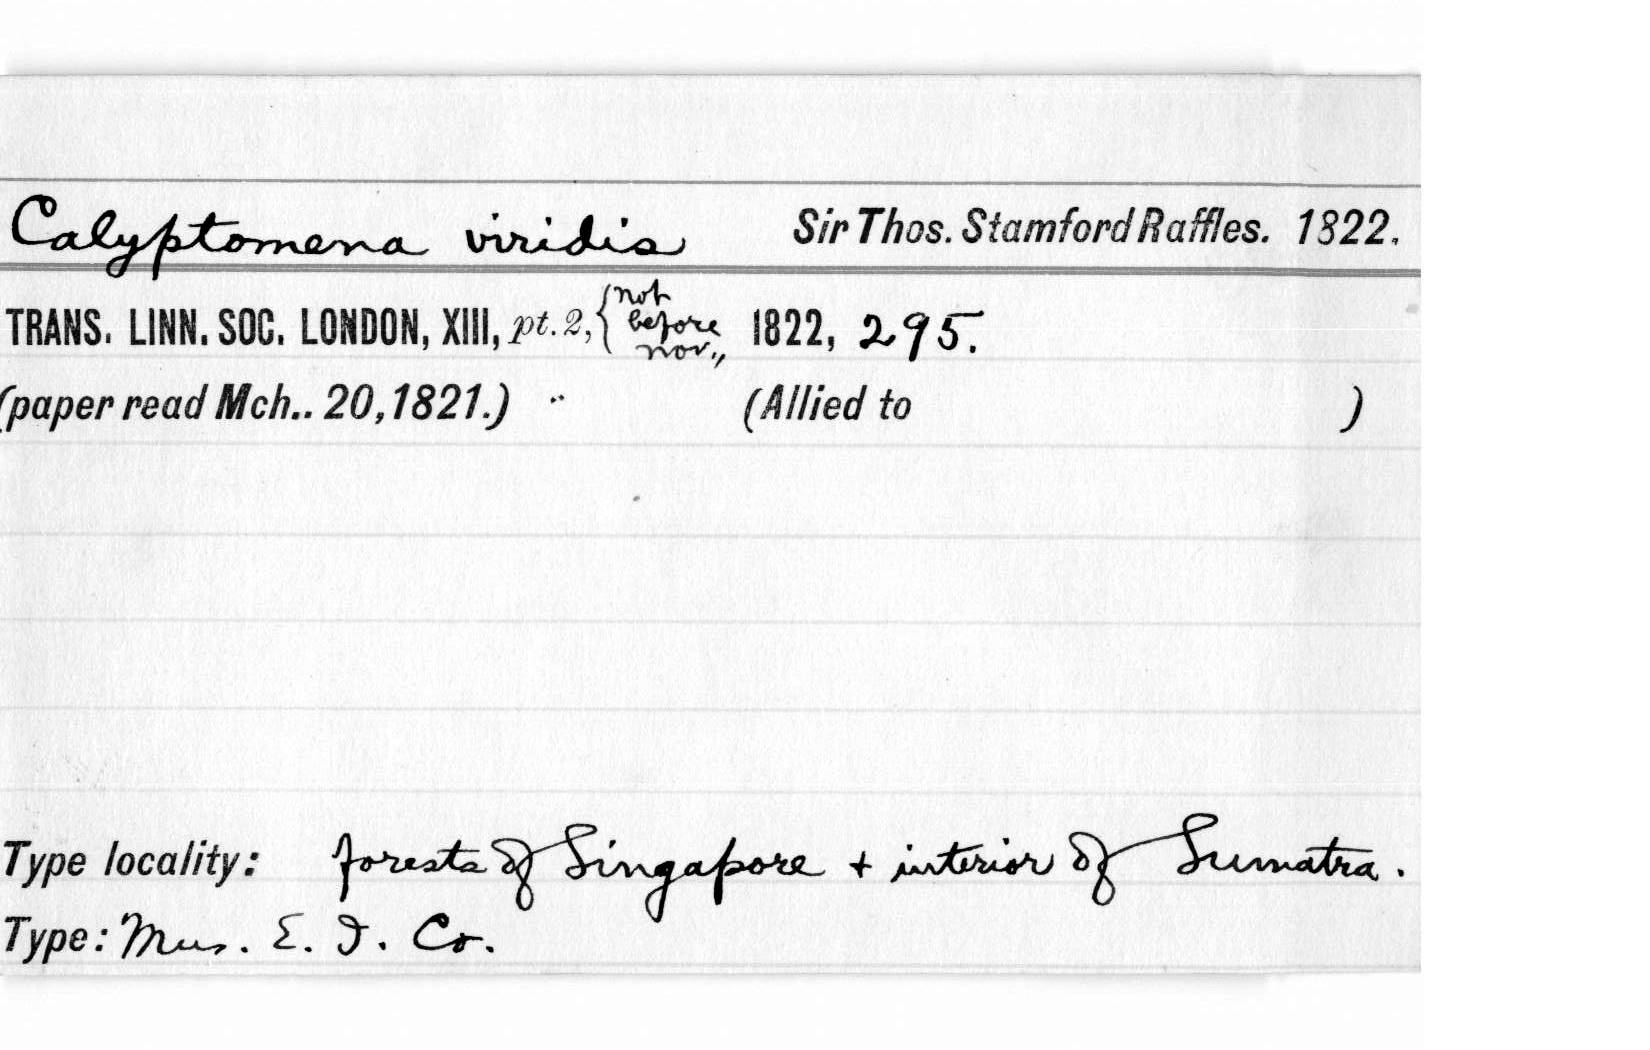 Calyptomena viridis Sir Thos. Stamford Raffles. 1822.
TRANS. LINN. SOC. LONDON, XIII, pt. 2, { not before nov., 1822, 295.
(paper read Mch.. 20, 1821.) (Allied to )
Type locality: forests of Singapore + interior of Sumatra.
Type: Mus. E. I. Co.